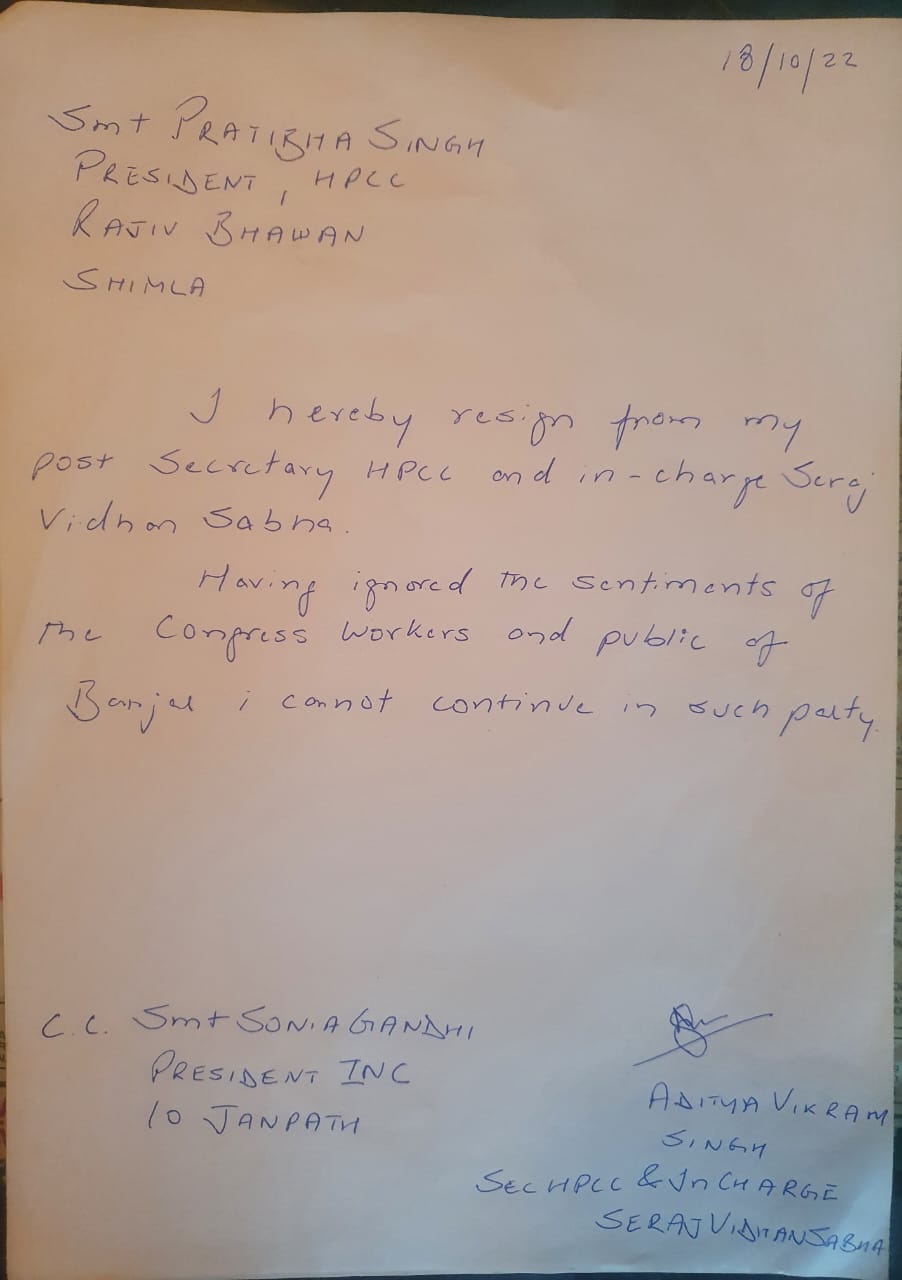 18/10/22
Smt PRATIBHA SINGH
PRESIDENT, HPCC
RAJIV BHAWAN
SHIMLA
I hereby resign from my
post Secretary HPCC and in-charge Seraj
Vidhan Sabha.
Having ignored the sentiments of
the Congress workers and public of
Banjar i cannot continue in such party.
C.C. Smt SONIA GANDHI
PRESIDENT INC
10 JANPATH
ADITYA VIKRAM
SINGH
SEC HPCC & In CHARGE
SERAJ VIDHAN SABHA